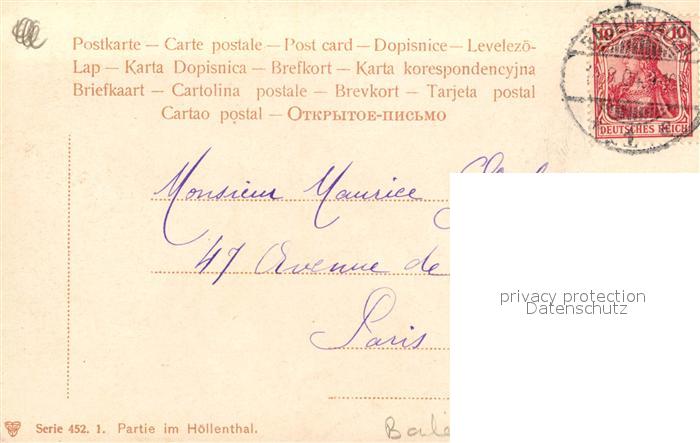 Postkarte – Carte postale – Post card – Dopisnice – Levelezö-
Lap – Karta Dopisnica – Brefkort – Karta korespondencyjna
Briefkaart – Cartolina postale – Brevkort – Tarjeta postal
Cartao postal – Открытое-письмо
10 10
DEUTSCHES REICH
Monsieur Maurice
47 Avenue de
Paris
privacy protection
Datenschutz
Serie 452. 1. Partie im Höllenthal.